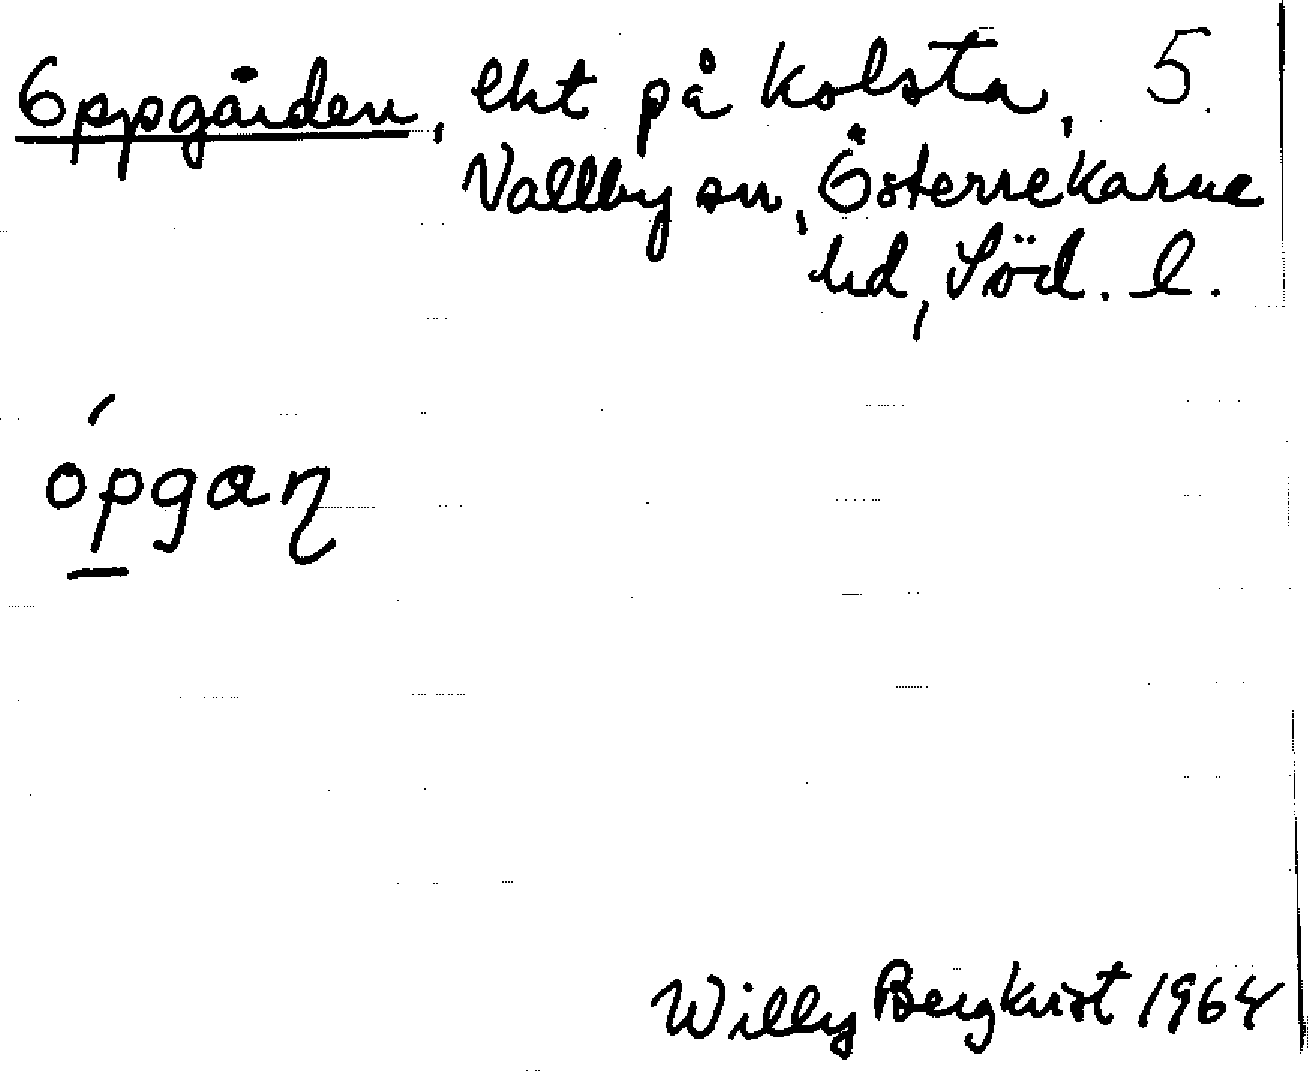 Oppgården, lht på Kolsta, 5.
Vallby sn, Österrekarne
hd, Söd. l.
ópgaɳ
Willy Bergkvist 1964